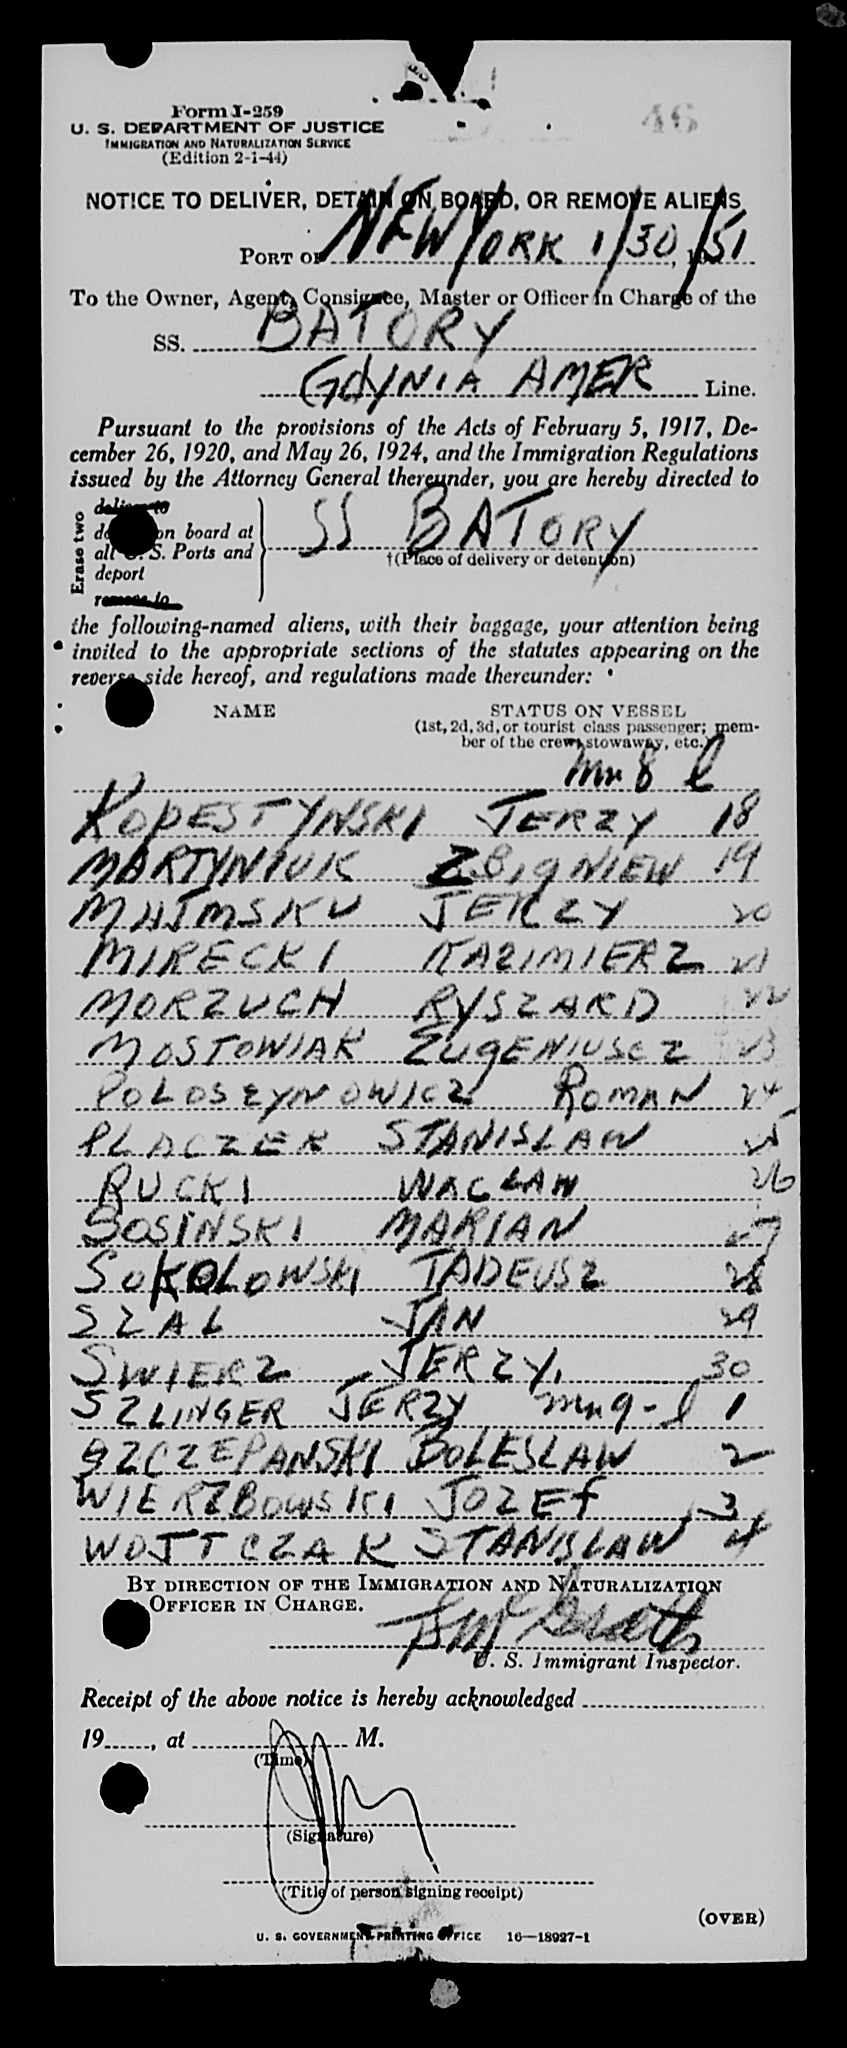 46
Form I-259
U. S. DEPARTMENT OF JUSTICE
IMMIGRATION AND NATURALIZATION SERVICE
(Edition 2-1-44)
NOTICE TO DELIVER, DETAIN ON BOARD, OR REMOVE ALIENS
PORT OF NEW YORK 1/30, 19 51
To the Owner, Agent, Consignee, Master or Officer in Charge of the
SS. BATORY
GDYNIA AMER Line.
Pursuant to the provisions of the Acts of February 5, 1917, De-
cember 26, 1920, and May 26, 1924, and the Immigration Regulations
issued by the Attorney General thereunder, you are hereby directed to
Erase two
deliver to
detain on board at
all U. S. Ports and
deport
remove to
SS BATORY
†(Place of delivery or detention)
the following-named aliens, with their baggage, your attention being
invited to the appropriate sections of the statutes appearing on the
reverse side hereof, and regulations made thereunder:
NAME STATUS ON VESSEL
(1st, 2d, 3d, or tourist class passenger; mem-
ber of the crew, stowaway, etc.)
8 l
KOPESTYNSKI JERZY 18
MARTYNIUK ZBIGNIEW 19
MAJMSKU JERZY 20
MIRECKI KAZIMIERZ 21
MORZUCH RYSZARD 22
MOSTOWIAK EUGENIUSCZ 23
POLOSZYNOWICZ ROMAN 24
PLACZEK STANISLAW 25
RUCKI WACLAW 26
SOSINSKI MARIAN 27
SOKOLOWSKI TADEUSZ 28
SZAL JAN 29
SWIERZ JERZY. 30
SZLINGER JERZY 9 - l 1
SZCZEPANSKI BOLESLAW 2
WIERZBOWSKI JOZEF 3
WOJTCZAK STANISLAW 4
BY DIRECTION OF THE IMMIGRATION AND NATURALIZATION
OFFICER IN CHARGE.
McGrath
U. S. Immigrant Inspector.
Receipt of the above notice is hereby acknowledged
19......, at M.
(Time)
(Signature)
(Title of person signing receipt)
(OVER)
U. S. GOVERNMENT PRINTING OFFICE 16—18927-1